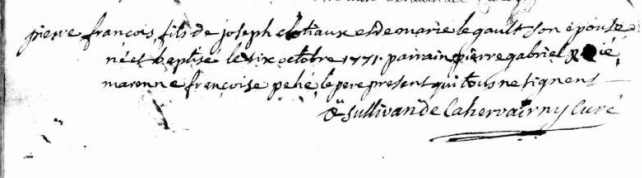 pierre françois fils de joseph clotiaux et de marie legault son épouse
né et baptisé le six octobre 1771. parrain pierre gabriel
marenne françoise pehé, le pere present qui tous ne signent
o sullivan de Cahervairny Curé